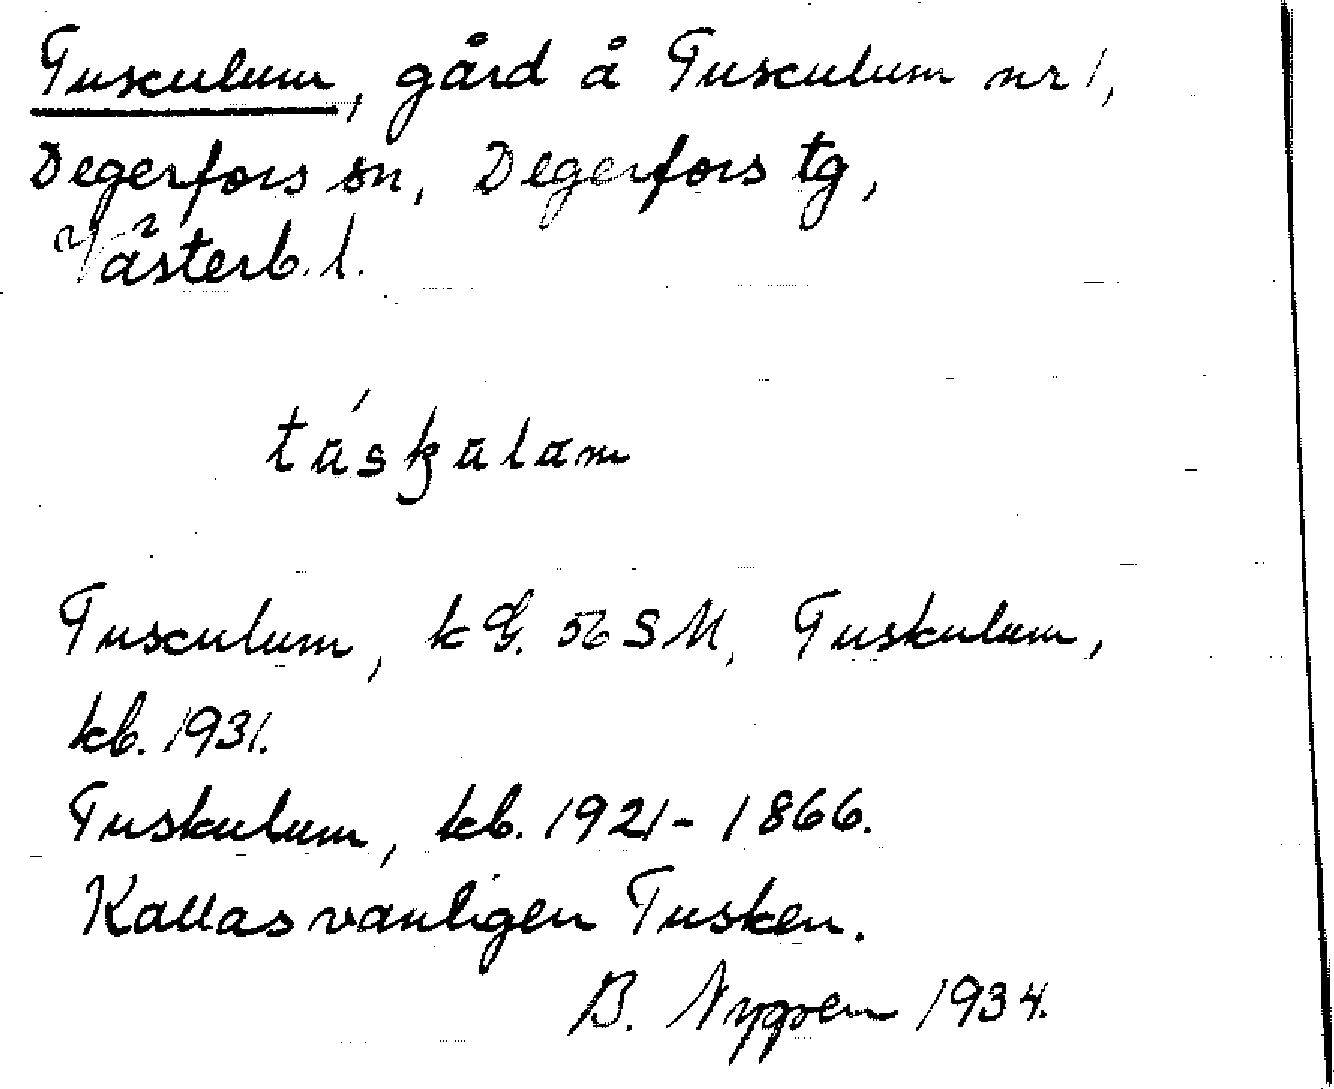 Tusculum, gård å Tusculum nr 1,
Degerfors sn, Degerfors tg,
Västerb. l.
táskalam
Tusculum, kG. 56 SM, Tuskulum,
kb. 1931.
Tuskulum, kb. 1921-1866.
Kallas vanligen Tusken.
B. Nygren 1934.